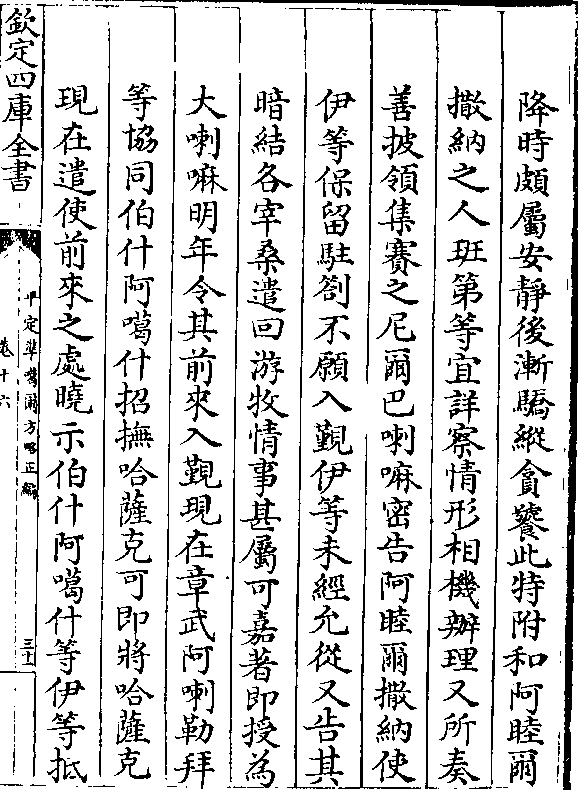 降時頗屬安靜後漸驕縱貪饕此特附和阿睦爾
撒納之人班第等宜詳察情形相機辦理又所奏
善披領集賽之尼爾巴喇嘛密告阿睦爾撒納使
伊等保留駐劄不願入覲伊等未經允從又告其
暗結各宰桑遣回游牧情事甚屬可嘉著即授為
大喇嘛明年令其前來入覲現在章武阿喇勒拜
等協同伯什阿噶什招撫哈薩克可即將哈薩克
現在遣使前來之處曉示伯什阿噶什等伊等抵
欽定四庫全書
平定準噶爾方略正編
卷十六
三十